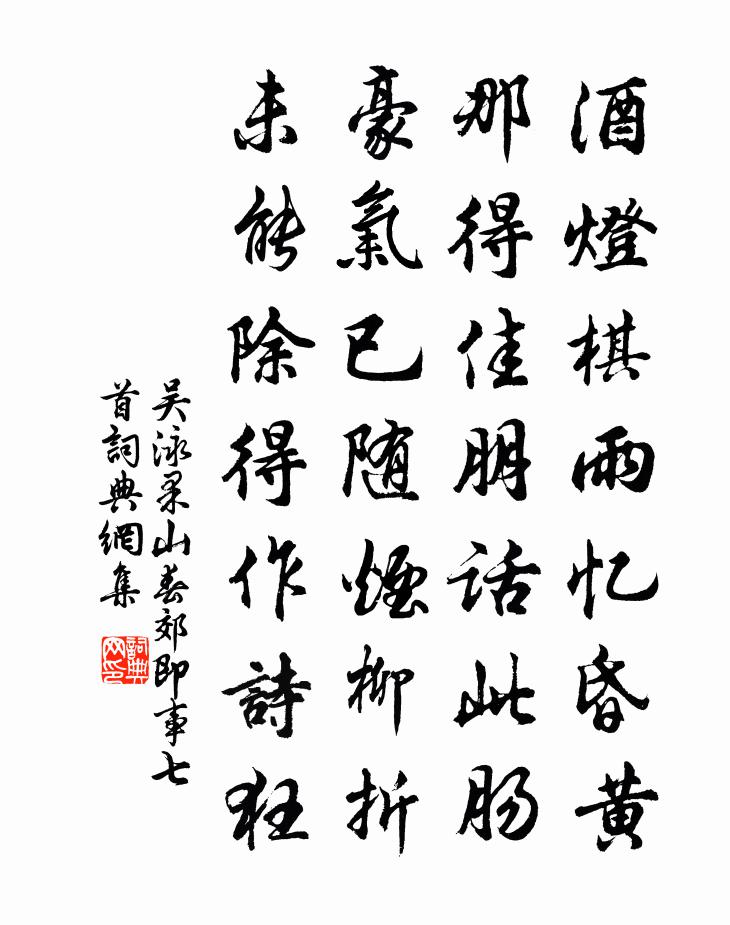 酒燈棋雨忆昏黄
那得佳朋话此肠
豪氣已随煙柳折
未能除得作詩狂
吴泳果山春郊即事七
首詞典網集
詞典
网印